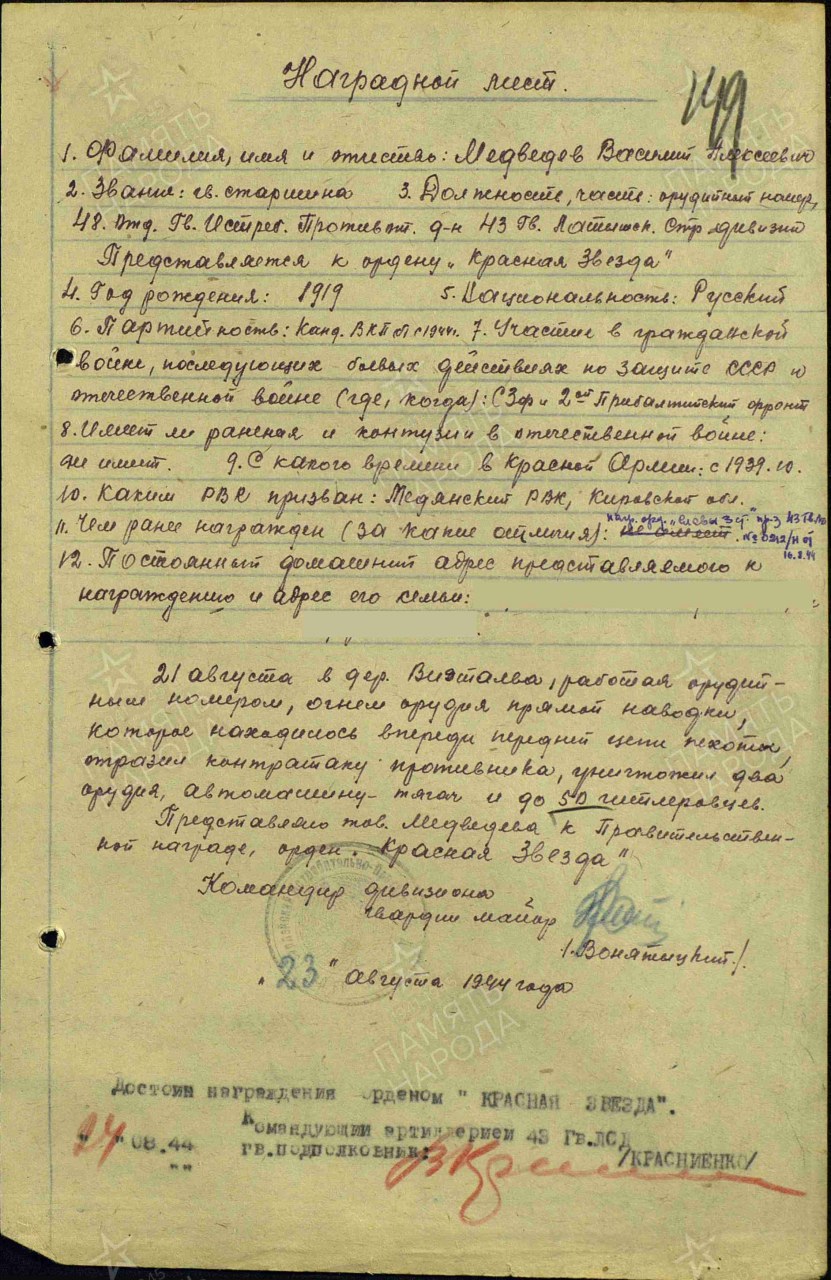 Наградной лист.
149
1. Фамилия, имя и отчество: Медведев Василий Алексеевич
2. Звание: гв. старшина 3. Должность, часть: орудийный номер,
48. Отд. Гв. Истреб. Противот. д-н 43 Гв. Латышск. Стр. дивизии
Представляется к ордену „Красная Звезда"
4. Год рождения: 1919 5. Национальность: Русский
6. Партийность: Канд. ВКП(б) с 1944г. 7. Участие в гражданской
войне, последующих боевых действиях по защите СССР и
отечественной войне (где, когда): СЗФ и 2ой Прибалтийский фронт
8. Имеет ли ранения и контузии в отечественной войне:
не имеет. 9. С какого времени в Красной Армии: с 1939.10.
10. Каким РВК призван: Медянский РВК, Кировской обл.
11. Чем ранее награжден (за какие отличия): не имеет.
наг. орд. „Славы 3 ст." пр-з 43 ГвЛСД
№ 0212/н от
16.8.44
12. Постоянный домашний адрес представляемого к
награждению и адрес его семьи:
21 августа в дер. Виэталва, работая орудий-
ным номером, огнем орудия прямой наводки,
которое находилось впереди передней цепи пехоты,
отразил контратаку противника, уничтожил два
орудия, автомашину-тягач и до 50 гитлеровцев.
Представляю тов. Медведева к Правительствен-
ной награде, орден „Красная Звезда"
Командир дивизиона
гвардии майор
/.Вонятицкий./.
„23" августа 1944 года
Достоин награждения орденом " КРАСНАЯ ЗВЕЗДА".
Командующий артиллерией 43 Гв.ЛСД
"24" 08.44 гв.подполковник: /КРАСНИЕНКО/
ПАМЯТЬ НАРОДА